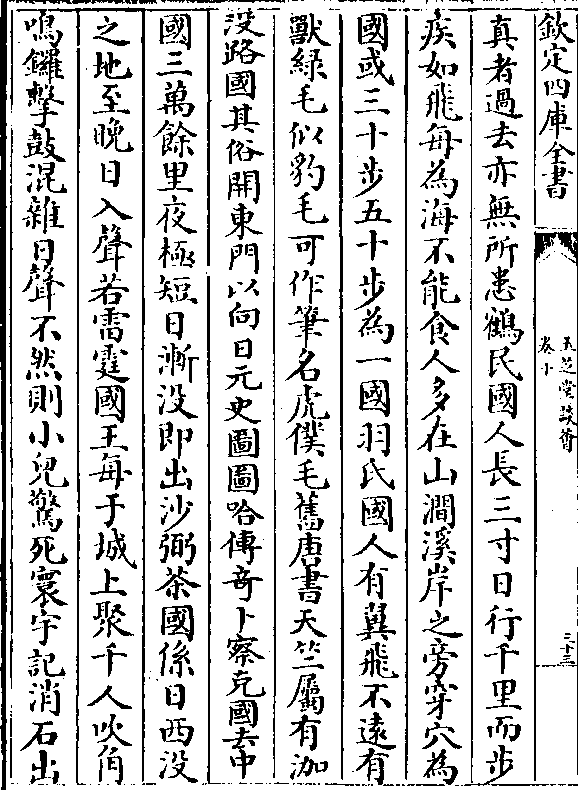 欽定四庫全書
玉芝堂談薈
卷十
三十三
真者過去亦無所患鶴民國人長三寸日行千里而步
疾如飛每為海不能食人多在山澗溪岸之旁穿穴為
國或三十步五十步為一國羽氏國人有翼飛不遠有
獸綠毛似豹毛可作筆名虎僕毛舊唐書天竺屬有泇
没路國其俗開東門以向日元史圖圖哈傳竒卜察克國去中
國三萬餘里夜極短日漸没即出沙弼茶國係日西没
之地至晚日入聲若雷霆國王每于城上聚千人吹角
鳴鑼擊鼓混雜日聲不然則小兒驚死寰宇記消石出